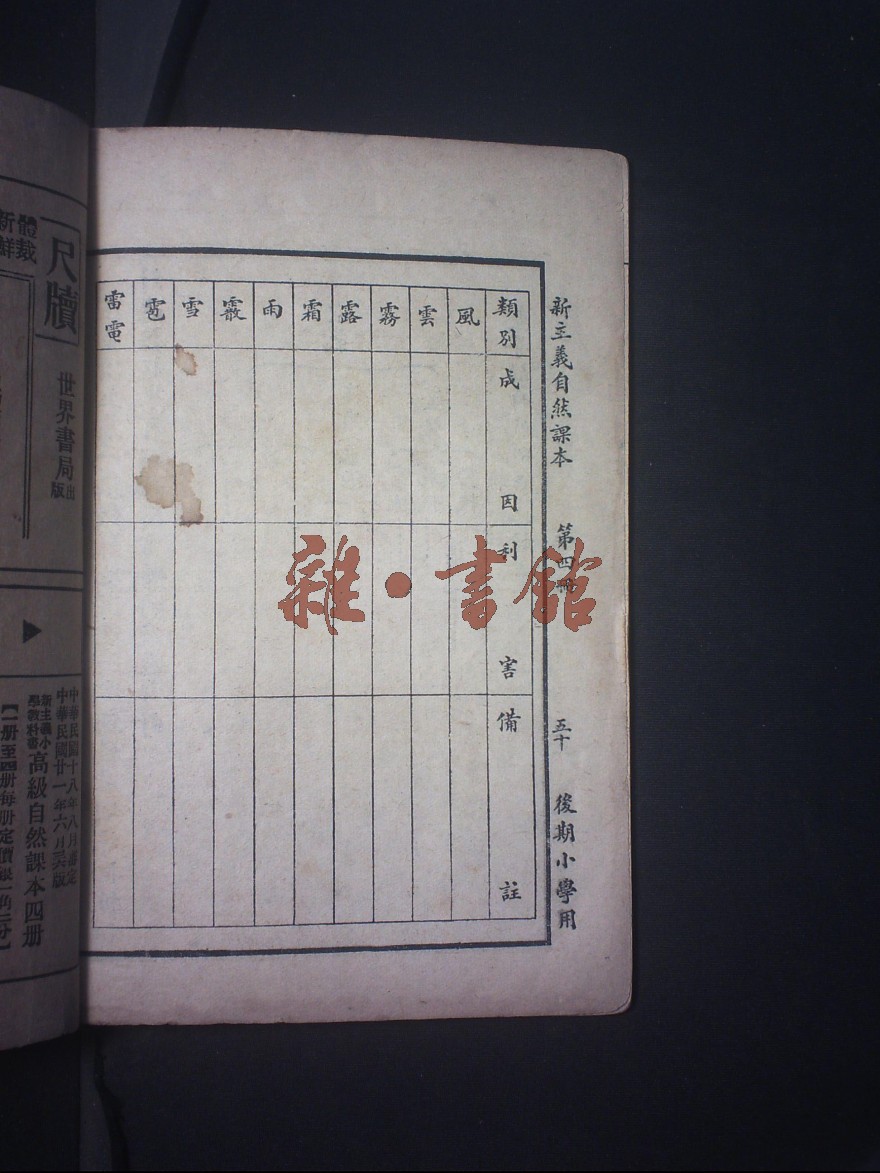 新主義自然課本 第四冊 五十 後期小學用
類別 成因 利害 備註
風
雲
霧
露
霜
雨
霰
雪
雹
雷電
雜·書館
體裁
新鮮
尺牘
世界書局出版
中華民國十八年八月審定
中華民國廿一年六月 版
新主義小學教科書 高級自然課本四册
【一册至四册每册定價銀一角二分】